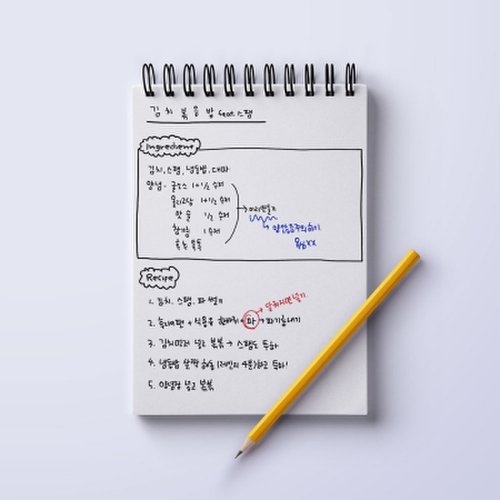 김치 볶음밥 feat 스팸
Ingredient
김치, 스팸, 냉동밥, 대파
양념 - 굴소스 1+1/2 수저
올리고당 1+1/2 수저
맛술 1/2 수저
참기름 1 수저
후추 톡톡
→ 미리만들기
Recipe
1. 김치, 스팸, 파 썰기
→ 달궈지면 넣기
2. 후라이팬 + 식용유 한바퀴 + 파 → 파기름내기
3. 김치 미리 넣고 볶볶 → 스팸도 투하
4. 냉동밥 살짝 해동 (전자레인지 4분)하고 투하!
5. 양념장 넣고 볶볶